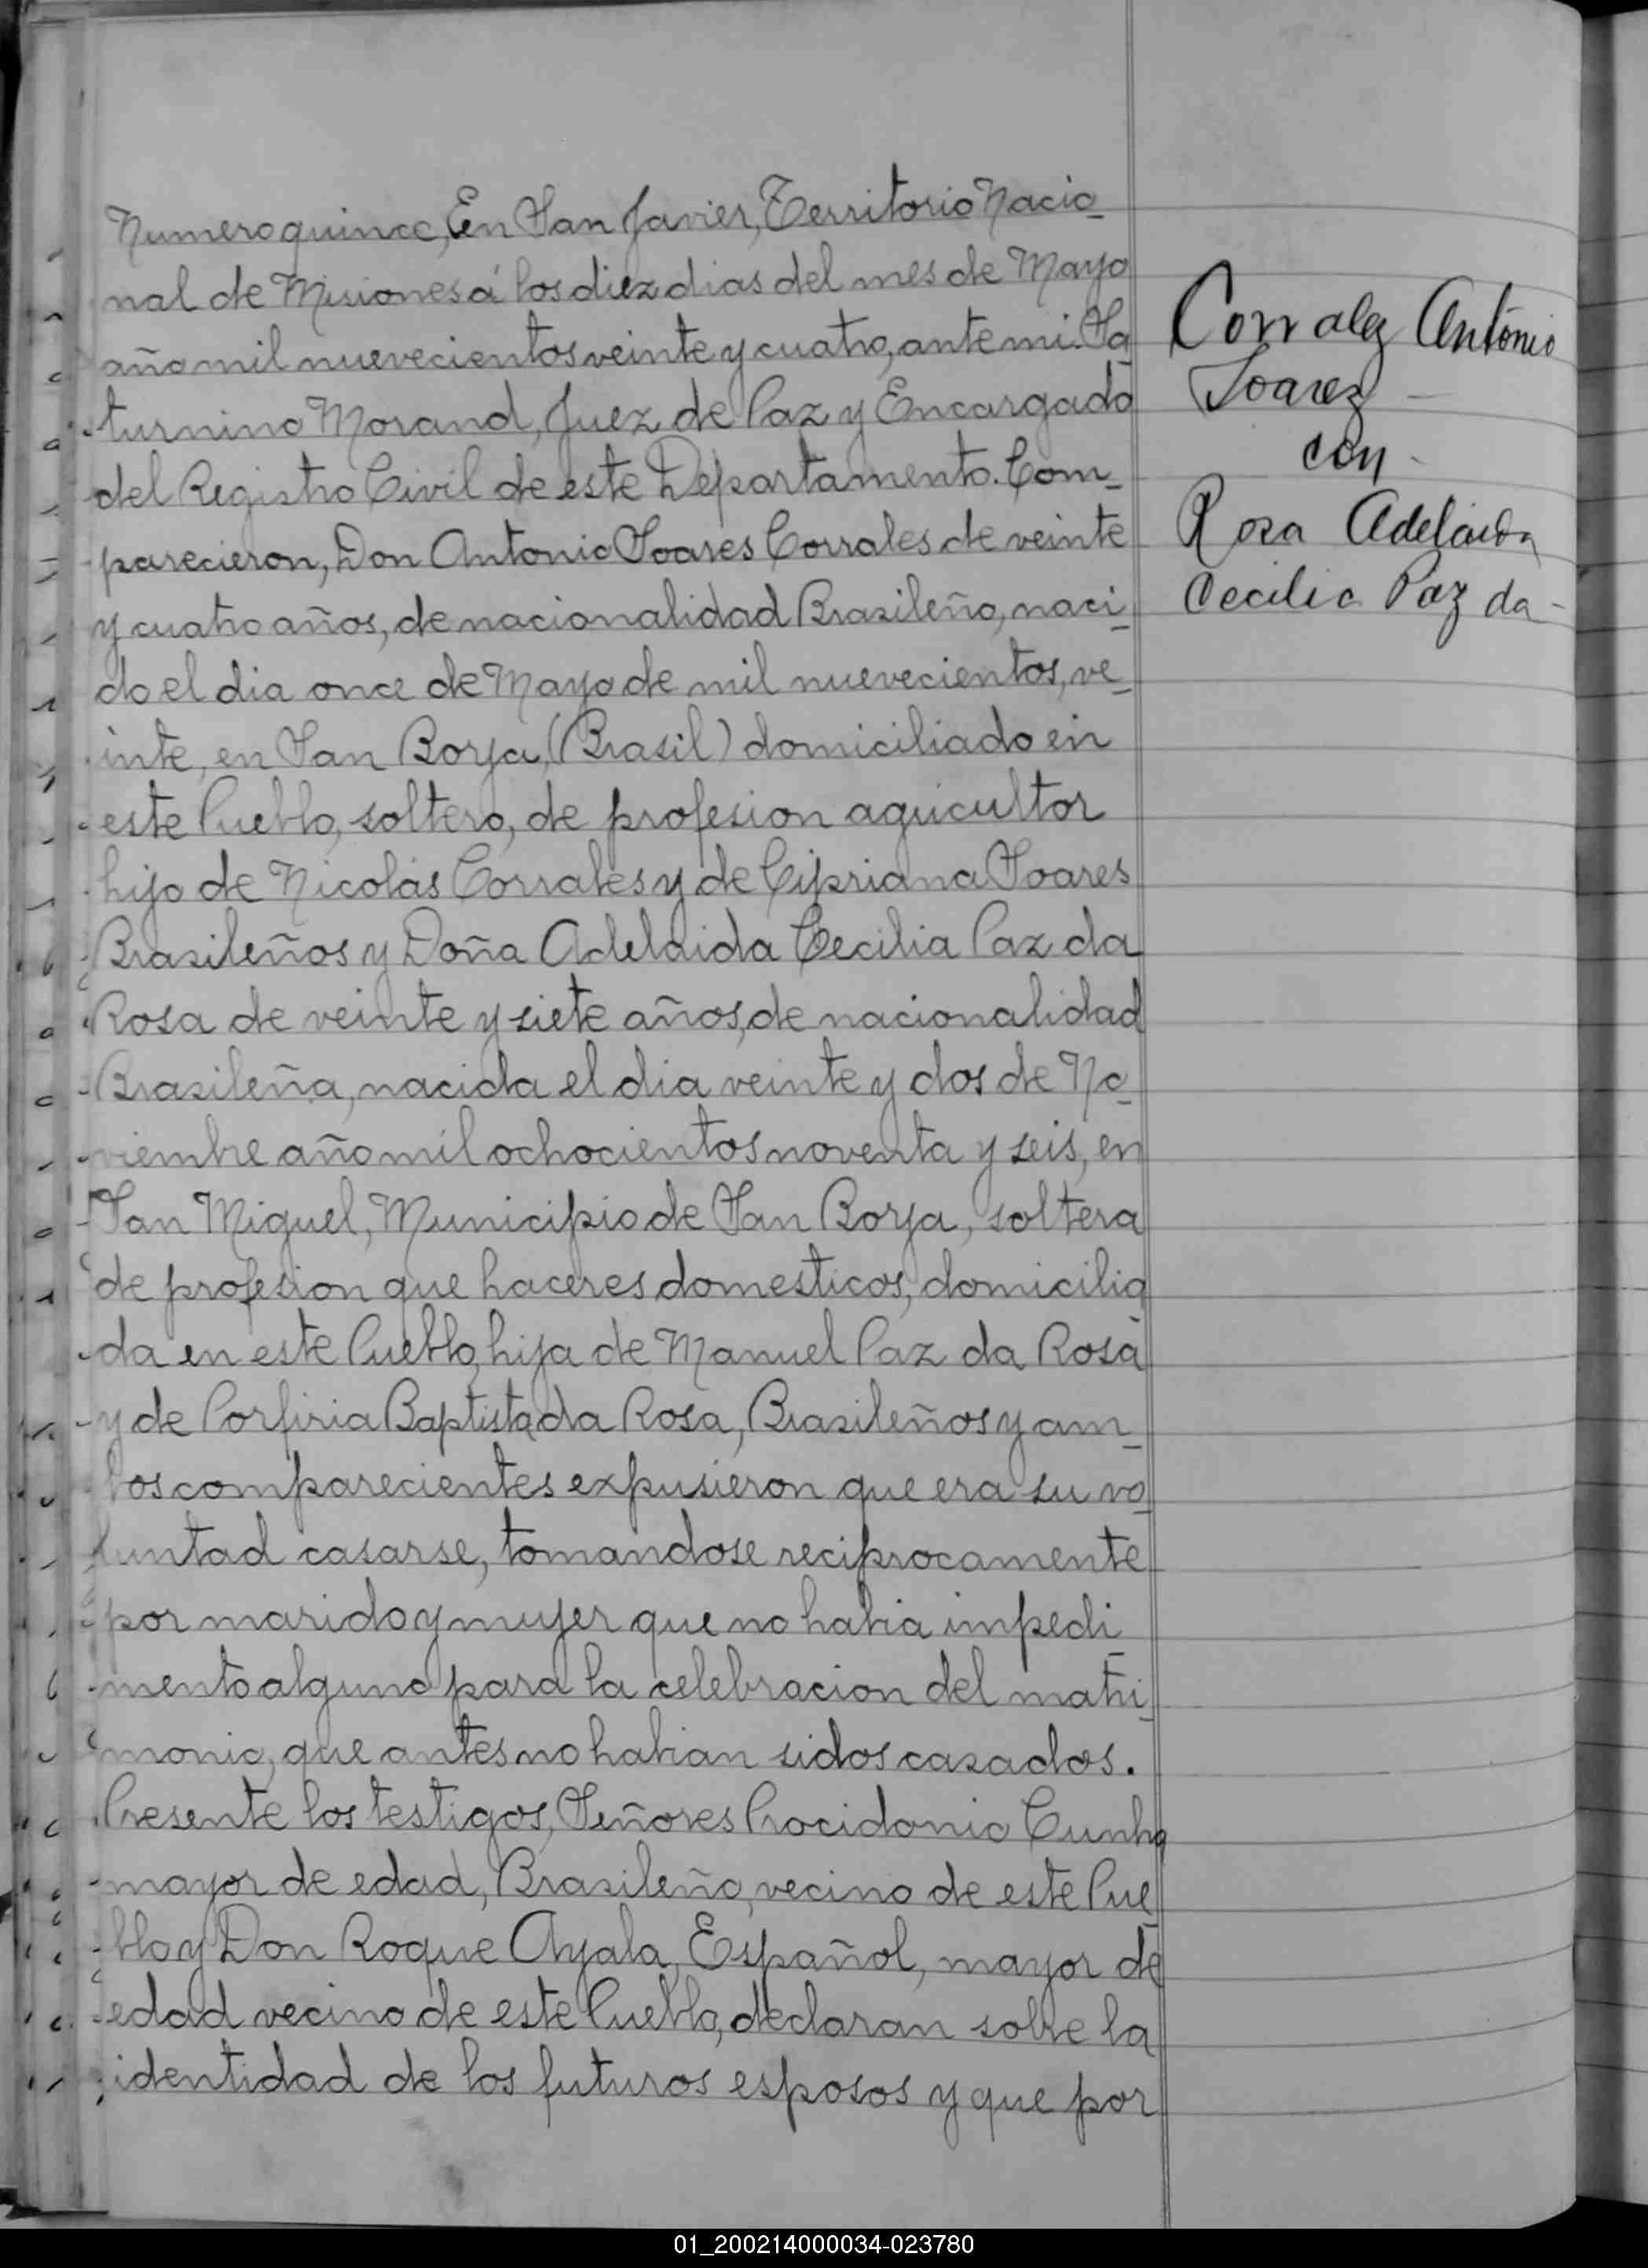 Numero quince, En San Javier, Territorio Nacio
nal de Misiones á los diez dias del mes de Mayo
año mil nuevecientos veinte y cuatro, ante mi Sa
turnino Morand, Juez de Paz y Encargado
del Registro Civil de este Departamento. Com-
parecieron, Don Antonio Soares Corrales de veinte
y cuatro años, de nacionalidad Brasileño, naci
do el dia once de Mayo de mil nuevecientos, ve
inte, en San Borja, (Brasil) domiciliado en
este Pueblo, soltero, de profesion agricultor
hijo de Nicolás Corrales y de Cipriana Soares
Brasileños y Doña Adelaida Cecilia Paz da
Rosa de veinte y siete años, de nacionalidad
Brasileña, nacida el dia veinte y dos de No
viembre año mil ochocientos noventa y seis, en
San Miguel, Municipio de San Borja, soltera
de profesion que haceres domesticos, domicilia
da en este Pueblo, hija de Manuel Paz da Rosa
y de Porfiria Baptista da Rosa, Brasileños y am
bos comparecientes expusieron que era su vo
luntad casarse, tomandose reciprocamente
por marido y mujer que no habia impedi
mento alguno para la celebracion del matri
monio, que antes no habian sidos casados.
Presente los testigos, Señores Procidonio Cunha
mayor de edad, Brasileño, vecino de este Pue
blo y Don Roque Ayala, Español, mayor de
edad vecino de este Pueblo, declaran sobre la
identidad de los futuros esposos y que por
Corralez Antonio
Soarez
con
Rosa Adelaida
Cecilia Paz da
01_200214000034-023780